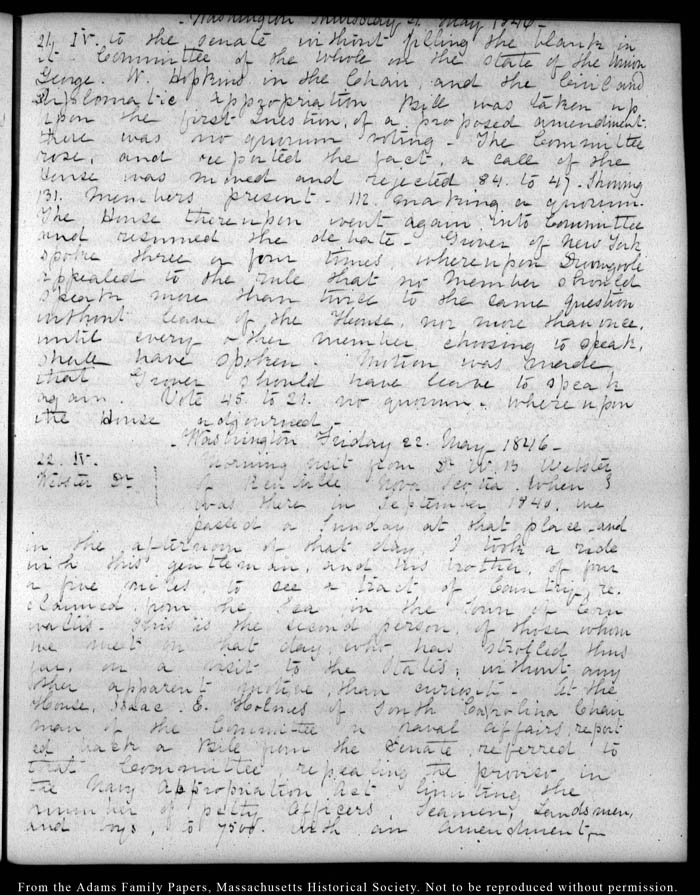 Washington Thursday 21. May 1846-
21. IV. to the Senate without filling the blank in
it. Committee of the whole on the state of the Union
George. W. Hopkins in the Chair, and the Civil and
diplomatic appropriation Bill was taken up
upon the first question, of a proposed amendment.
there was no quorum voting- The Committee
rose, and reported the fact, a call of the
House was moved and rejected 84. to 47. Shewing
131. members present- 112. making a quorum-
The House thereupon went again into Committee
and resumed the debate- Grover of New York
spoke three or four times, whereupon Dromgoole
appealed to the rule that no member should
speak more than twice to the same question
without leave of the House, nor more than once,
until every other member choosing to speak,
shall have spoken. Motion was made
that Grover should have leave to speak
again. Vote 45 to 21. no quorum- whereupon
the House adjourned-
Washington Friday 22. May 1846-
22. IV. Morning visit from Dr W. B Webster
Webster Dr. of Kentville Nova Scotia. When I
was there in September 1840. we
passed a Sunday at that place and
in the afternoon of that day, I took a ride
with this gentleman, and his brother, of four
or five miles, to see a tract of Country, re-
claimed from the Sea in the Town of Corn
wallis- This is the second person, of those whom
we met on that day, who has strolled thus
far, on a visit to the States, without any
other apparent motive, than curiosity- At the
House, Isaac E. Holmes of South Carolina Chair
man of the Committee on naval affairs, report
ed back a Bill from the Senate, referred to
that Committee, repealing the proviso in
the Navy Appropriation Act limiting the
number of petty Officers, Seamen, Landsmen,
and boys, to 7500. with an amendment,-
From the Adams Family Papers, Massachusetts Historical Society. Not to be reproduced without permission.